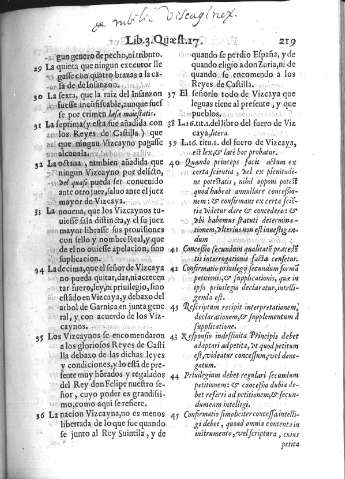 de nobilit. Viscaginor.
Lib.3. Quæst.17. 219
gun genero de pecho, ni tributo.
29 La quinta que ningun executor lle
gasse con quatro brazas a la ca-
sa de de Infanzon.
30 La sexta, que la raiz del Infanzon
fuesse inconfiscable, aunque fues-
se por crimen læse maiestatis.
31 La septima (y esta fue añadida con
los Reyes de Castilla) que
que ningun Vizcayno pagasse
alcauala.
32 La octaua, tambien añadida que
ningun Vizcayno por delicto,
vel quasi pueda ser conuenido
ante otro juez, saluo ante el juez
mayor de Vizcaya.
33 La nouena, que los Vizcaynos tu-
uiesse silla distincta, y el su juez
mayor librasse sus prouisiones
con sello y nombre Real, y que
de el no ouiesse apelacion, sino
suplicacion.
34 La decima, que el señor de Vizcaya
no pueda quitar, dar, ni acrecen
tar fuero, ley, ni priuilegio, sino
estãdo en Vizcaya, y debaxo del
arbol de Garnica en junta gene
ral, y con acuerdo de los Viz-
caynos.
35 Los Vizcaynos se encomendaron
a los gloriosos Reyes de Casti
lla debaxo de las dichas leyes
y condiciones, y lo estã de pre-
sente muy hõrados y regalados
del Rey don Felipe nuestro se-
ñor, cuyo poder es grandissi-
mo, como aqui se refiere.
36 La nacion Vizcayna, no es menos
libertada de lo que fue quando
se junto al Rey Suintila, y de
quando se perdio España, y de
quando eligio a don Zuria, ni de
quando se encomendo a los
Reyes de Castilla.
37 El señorio todo de Vizcaya que
leguas tiene al presente, y que
pueblos.
38 L.16.tit.1. del libro del fuero de Viz
caya, litera.
39 L.16.tit.1. del fuero de Vizcaya,
est lex, & late hoc probatur.
40 Quando princeps facit actum ex
certa scientia, vel ex plenitudi-
ne potestatis, nihil opponi potest
quod habeat annullare concessio-
nem: & confirmans ex certa scien
tia videtur dare & concedere: &
vbi habemus statuti determina-
tionem, vlterius non est inuestigen-
dum
41 Concessio secundum qualitatẽ præces̃
tis interrogationis facta censetur.
42 Confirmatio priuilegij secundum formã
petitionis, & supplicationis, que in
ipso priuilegio declaratur, intelli-
genda est.
43 Rescriptum recipit interpretationem,
declarationem, & supplementum à
supplicatione.
43 Responsio indefinita Principis debet
adaptari ad petita, vt quod petitum
est, videatur concessum, vel dene-
gatum.
44 Priuilegium debet regulari secundum
petitionem: & concessio dubia de-
bet referri ad petitionem, & secun-
dum eam intelligi.
45 Confirmatio simpliciter concessa intelli-
gi debet, quoad omnia contenta in
instrumento, vel scriptura, cuius
petita